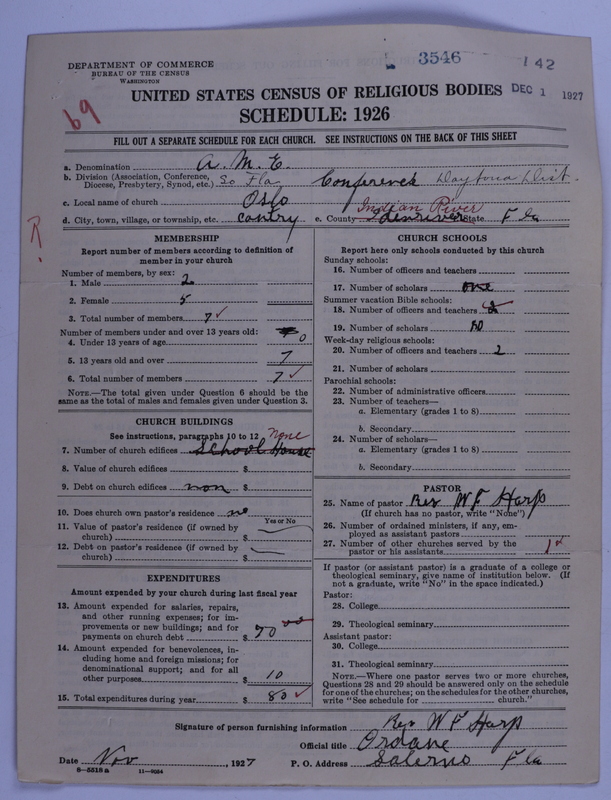 3546
142
DEPARTMENT OF COMMERCE
BUREAU OF THE CENSUS
WASHINGTON
69
UNITED STATES CENSUS OF RELIGIOUS BODIES
DEC 1 1927
SCHEDULE: 1926
FILL OUT A SEPARATE SCHEDULE FOR EACH CHURCH. SEE INSTRUCTIONS ON THE BACK OF THIS SHEET
a. Denomination A. M. E.
b. Division (Association, Conference, Diocese, Presbytery, Synod, etc.) So Fla Conferenck Daytona Dist.
c. Local name of church Oslo
Indian River
d. City, town, village, or township, etc. contry e. County State Fla
R?
MEMBERSHIP
Report number of members according to definition of
member in your church
Number of members, by sex:
1. Male 2
2. Female 5
3. Total number of members 7 ✓
Number of members under and over 13 years old:
4. Under 13 years of age 0
5. 13 years old and over 7
6. Total number of members 7 ✓
NOTE.—The total given under Question 6 should be the
same as the total of males and females given under Question 3.
CHURCH BUILDINGS
See instructions, paragraphs 10 to 12 none
7. Number of church edifices School House
8. Value of church edifices $
9. Debt on church edifices non $
10. Does church own pastor's residence no
Yes or No
11. Value of pastor's residence (if owned by
church) $
12. Debt on pastor's residence (if owned by
church) $
EXPENDITURES
Amount expended by your church during last fiscal year
13. Amount expended for salaries, repairs,
and other running expenses; for im-
provements or new buildings; and for
payments on church debt $ 70
14. Amount expended for benevolences, in-
cluding home and foreign missions; for
denominational support; and for all
other purposes $ 10
15. Total expenditures during year $ 80 ✓
CHURCH SCHOOLS
Report here only schools conducted by this church
Sunday schools:
16. Number of officers and teachers
17. Number of scholars one
Summer vacation Bible schools:
18. Number of officers and teachers 2
19. Number of scholars
Week-day religious schools:
20. Number of officers and teachers 2
21. Number of scholars
Parochial schools:
22. Number of administrative officers
23. Number of teachers—
a. Elementary (grades 1 to 8)
b. Secondary
24. Number of scholars—
a. Elementary (grades 1 to 8)
b. Secondary
PASTOR
25. Name of pastor Rev W F Harp
(If church has no pastor, write "None")
26. Number of ordained ministers, if any, em-
ployed as assistant pastors
27. Number of other churches served by the
pastor or his assistants 1
If pastor (or assistant pastor) is a graduate of a college or
theological seminary, give name of institution below. (If
not a graduate, write "No" in the space indicated.)
Pastor:
28. College
29. Theological seminary
Assistant pastor:
30. College
31. Theological seminary
NOTE.—Where one pastor serves two or more churches,
Questions 28 and 29 should be answered only on the schedule
for one of the churches; on the schedules for the other churches,
write "See schedule for church."
Signature of person furnishing information Rev W F Harp
Official title Ordane
Date Nov , 1927 P. O. Address Salerno Fla
8—5518a 11—9054